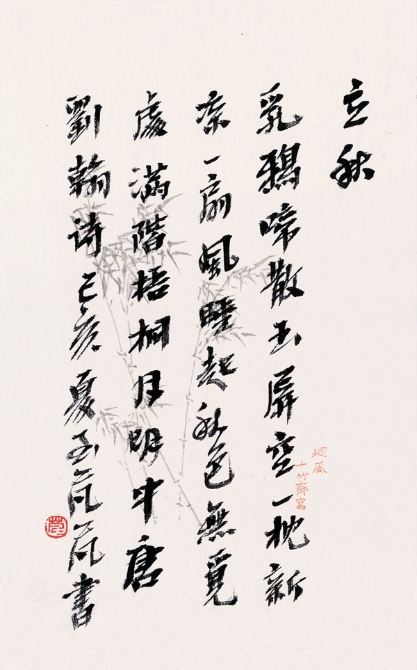 立秋
乳鴉啼散玉屏空一枕新
凉一扇風睡起秋色無覓
處滿階梧桐月明中唐
劉翰诗己亥夏至芃芃書
十竹齋寫